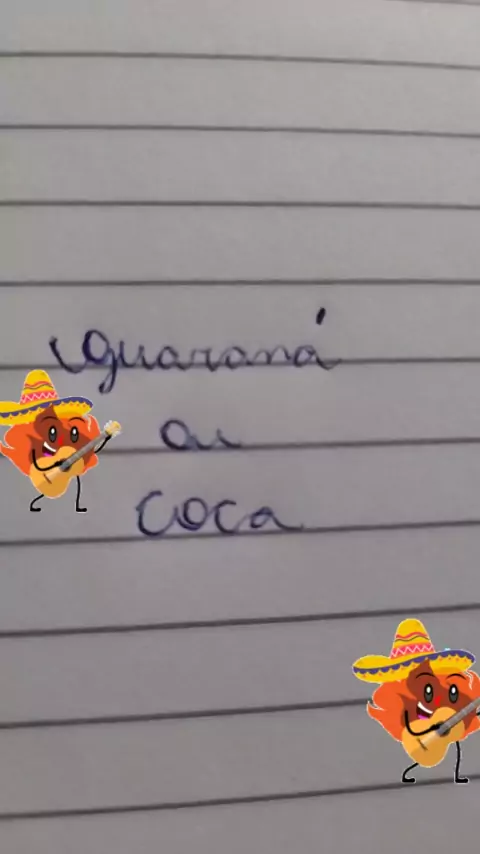 guaraná
ou
coca